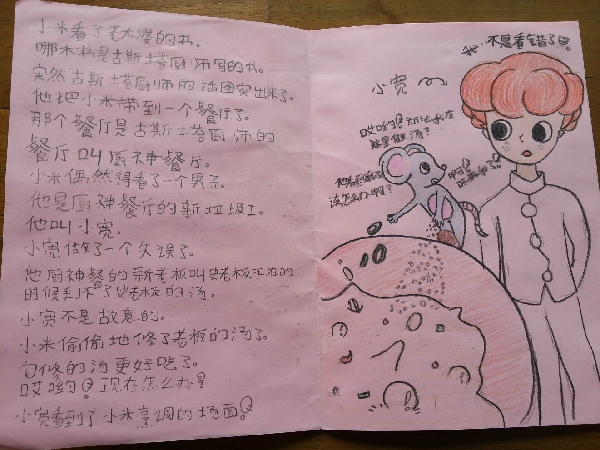 小米看了老太婆的书。
那本书是古斯塔厨师写的书。
突然古斯塔厨师的
出来了。
他把小米带到一个餐厅了。
那个餐厅是古斯塔厨师的
餐厅叫厨神餐厅。
小米偶然得看了一个男子。
他是厨神餐厅的新垃圾工。
他叫小宽。
小宽做了一个欠误了。
他厨神餐的新老板叫
的
时候
了
板的汤。
小宽不是故意的。
小米偷偷地修了老板的汤了。
它修的汤更好吃了。
哎哟!现在怎么办
小宽看到了小米烹调的场面!
不是看错了
小宽
哎哟!为什么我在
这里做汤?
他看到
了
该怎么办啊?
啊!